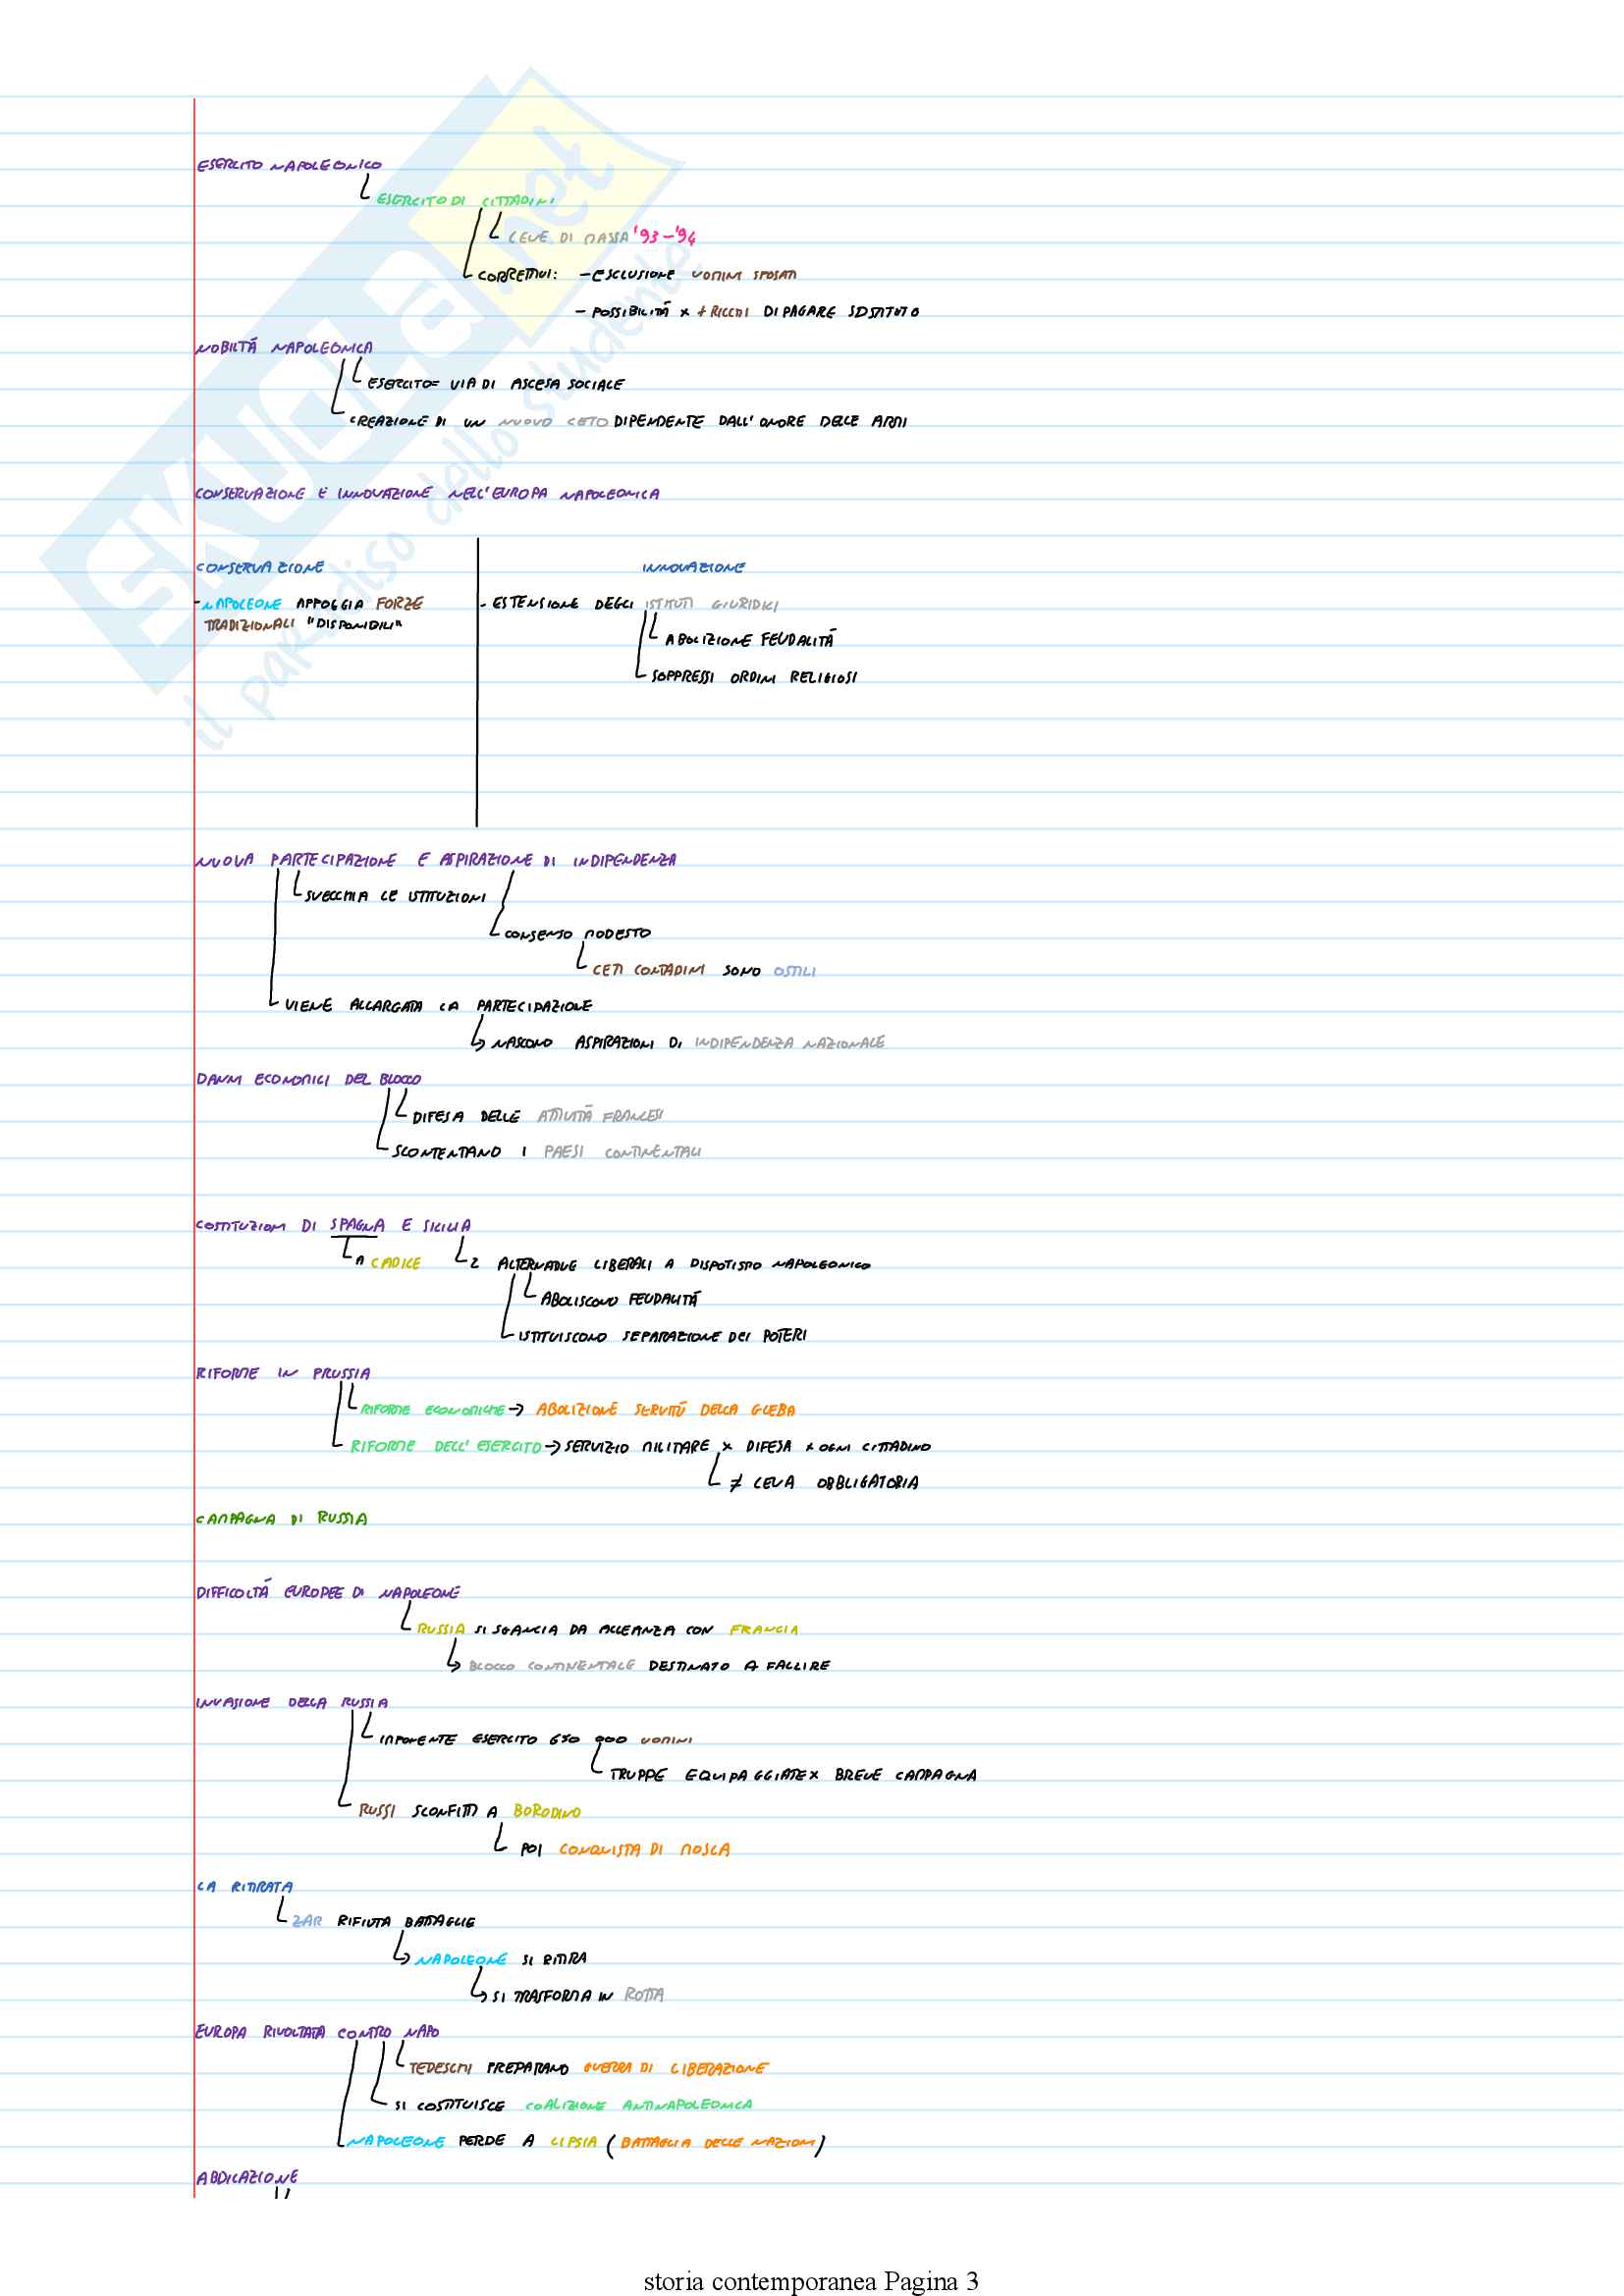 ESERCITO NAPOLEONICO
ESERCITO DI CITTADINI
LEVE DI MASSA '93-'94
CORRETTIVI: - ESCLUSIONE UOMINI SPOSATI
- POSSIBILITÁ x + RICCHI DI PAGARE SOSTITUTO
NOBILTÁ NAPOLEONICA
ESERCITO= VIA DI ASCESA SOCIALE
CREAZIONE DI UN NUOVO CETO DIPENDENTE DALL'ONORE DELLE ARMI
CONSERVAZIONE E INNOVAZIONE NELL'EUROPA NAPOLEONICA
CONSERVAZIONE
INNOVAZIONE
- NAPOLEONE APPOGGIA FORZE
TRADIZIONALI "DISPONIBILI"
- ESTENSIONE DEGLI ISTITUTI GIURIDICI
ABOLIZIONE FEUDALITÁ
SOPPRESSI ORDINI RELIGIOSI
NUOVA PARTECIPAZIONE E ASPIRAZIONE DI INDIPENDENZA
SVECCHIA LE ISTITUZIONI
CONSENSO MODESTO
CETI CONTADINI SONO OSTILI
VIENE ALLARGATA LA PARTECIPAZIONE
NASCONO ASPIRAZIONI DI INDIPENDENZA NAZIONALE
DANNI ECONOMICI DEL BLOCCO
DIFESA DELLE ATTIVITÁ FRANCESI
SCONTENTANO I PAESI CONTINENTALI
COSTITUZIONI DI SPAGNA E SICILIA
A CADICE
2 ALTERNATIVE LIBERALI A DISPOTISMO NAPOLEONICO
ABOLISCONO FEUDALITÁ
ISTITUISCONO SEPARAZIONE DEI POTERI
RIFORME IN PRUSSIA
RIFORME ECONOMICHE → ABOLIZIONE SERVITÙ DELLA GLEBA
RIFORME DELL'ESERCITO → SERVIZIO MILITARE x DIFESA x OGNI CITTADINO
≠ LEVA OBBLIGATORIA
CAMPAGNA DI RUSSIA
DIFFICOLTÁ EUROPEE DI NAPOLEONE
RUSSIA SI SGANCIA DA ALLEANZA CON FRANCIA
BLOCCO CONTINENTALE DESTINATO A FALLIRE
INVASIONE DELLA RUSSIA
IMPONENTE ESERCITO 650 000 UOMINI
TRUPPE EQUIPAGGIATE x BREVE CAMPAGNA
RUSSI SCONFITTI A BORODINO
POI CONQUISTA DI MOSCA
LA RITIRATA
ZAR RIFIUTA BATTAGLIE
NAPOLEONE SI RITIRA
SI TRASFORMA IN ROTTA
EUROPA RIVOLTATA CONTRO NAPO
TEDESCHI PREPARANO GUERRA DI LIBERAZIONE
SI COSTITUISCE COALIZIONE ANTINAPOLEONICA
NAPOLEONE PERDE A LIPSIA (BATTAGLIA DELLE NAZIONI)
ABDICAZIONE
SKUOLA.net
il paradiso dello studente
storia contemporanea Pagina 3